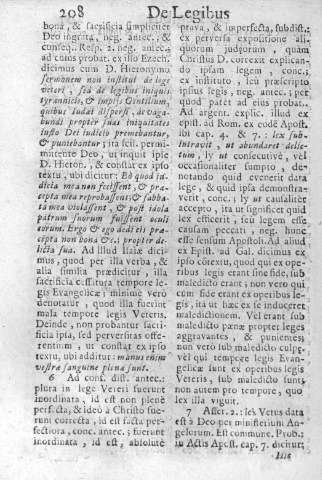 208 De Legibus
bona, & sacrificia simpliciter
Deo ingrata, neg. antec., &
conseq. Resp. 2. neg. antec.,
ad cuius probat. ex illo Ezech.
dicimus cum D. Hieronymo
sermonem non institui de lege
veteri, sed de legibus iniquis
tyrannicis, & impiis Gentilium,
quibus Iudæi dispersi, & vaga-
bundi propter suas iniquitates
iusto Dei iudicio premebantur,
& puniebantur; ita scil. permi-
mittente Deo, ut inquit ipse
D. Hieron., & constat ex ipso
textu, ubi dicitur: Eò quod iu-
dicia mea non fecissent, & præ-
cepta mea reprobassent, & sabba-
ta mea violassent, & post idola
patrum suorum fuissent oculi
eorum. Ergo & ego dedi ei præ-
cepta non bona &c.; propter de-
licta sua. Ad illud Isaiæ dici-
mus, quod per illa verba, &
alia similia prædicitur, illa
sacrificia cessitura tempore le-
gis Evangelicæ; minimè verò
denotatur, quod illa fuerint
mala tempore legis Veteris.
Deinde, non probantur sacri-
ficia ipsa, sed perversitas offe-
rentium, ut constat ex ipso
textu, ubi additur: manus enim
vestræ sanguine plenæ sunt.
6 Ad conf. dist. antec.:
plura in lege Veteri fuerunt
inordinata, id est non plenè
perfecta, & ideò à Christo fue-
runt correcta, id est facta per-
fectiora, conc. antec.; fuerunt
inordinata, id est, absolutè
prava, & imperfecta, subdist.:
& perversa expositione ali-
quorum judæorum, quam
Christus D. correxit explican-
do ipsam legem, conc.;
ex instituto, seu præscripto
ipsius legis, neg. antec.; per
quod patet ad eius probat.
Ad argent. explic. illud ex
epist. ad Rom. ex eodē Apost.
ibi cap. 4. & 7.: lex sub-
intravit, ut abundaret delic-
tum, ly ut consecutivè, vel
occasionaliter sumpto, de-
notando quid evenerit data
lege, & quid ipsa demonstra-
verit, conc.; ly ut causaliter
accepto, ita ut significet quid
lex effecerit, seu legem esse
causam peccati, neg. hunc
esse sensum Apostoli. Ad aliud
ex Epist. ad Gal. dicimus ex
ipso cōtextu, quod qui ex ope-
ribus legis erant sine fide, sub
maledicto erant; non vero qui
cum fide erant ex operibus le-
gis, ita ut hæc ex se induceret
maledictionem. Vel erant sub
maledicto pœnæ propter leges
aggravantes, & punientes;
non vero sub maledicto culpæ
vel qui tempore legis Evan-
gelicæ sunt ex operibus legis
Veteris, sub maledicto sunt;
non autem pro tempore, quo
lex illa viguit.
7 Asser. 2.: lex Vetus data
est à Deo per ministerium An-
gelorum. Est commune. Prob.:
in Actis Apost. cap. 7. dicitur;